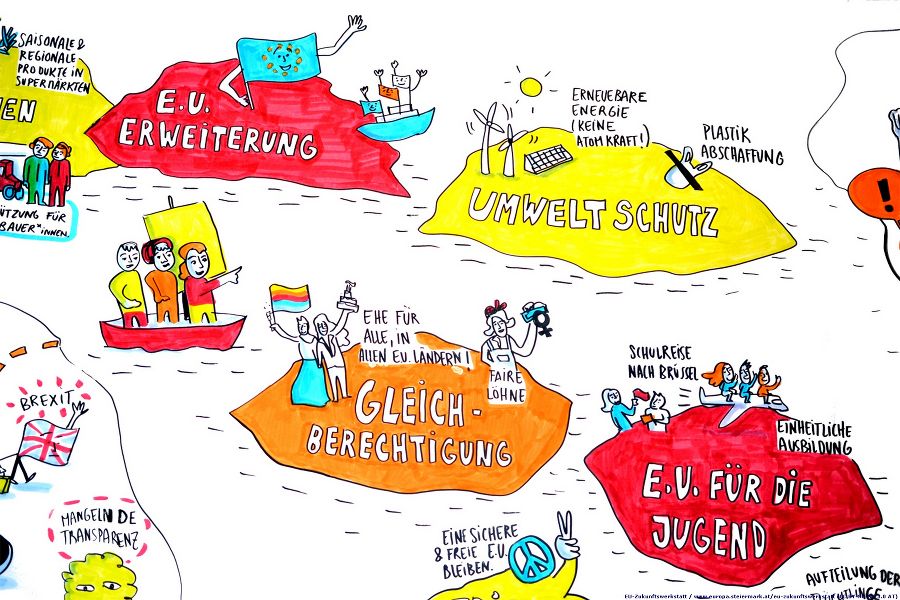 SAISONALE &
REGIONALE
PRODUKTE IN
SUPERMÄRKTEN
EN
ÜTZUNG FÜR
BAUER*INNEN.
E.U.
ERWEITERUNG
ERNEUERBARE
ENERGIE
(KEINE
ATOMKRAFT!)
PLASTIK
ABSCHAFFUNG
UMWELTSCHUTZ
!
EHE FÜR
ALLE, IN
ALLEN EU. LÄNDERN!
FAIRE
LÖHNE
GLEICH-
BERECHTIGUNG
SCHULREISE
NACH BRÜSSEL
EINHEITLICHE
AUSBILDUNG
E.U. FÜR DIE
JUGEND
BREXIT
MANGELNDE
TRANSPARENZ
EINE SICHERE
& FREIE E.U.
BLEIBEN.
AUFTEILUNG DER
EU-Zukunftswerkstatt / www.europa.steiermark.at/eu-zukunftswerkstatt